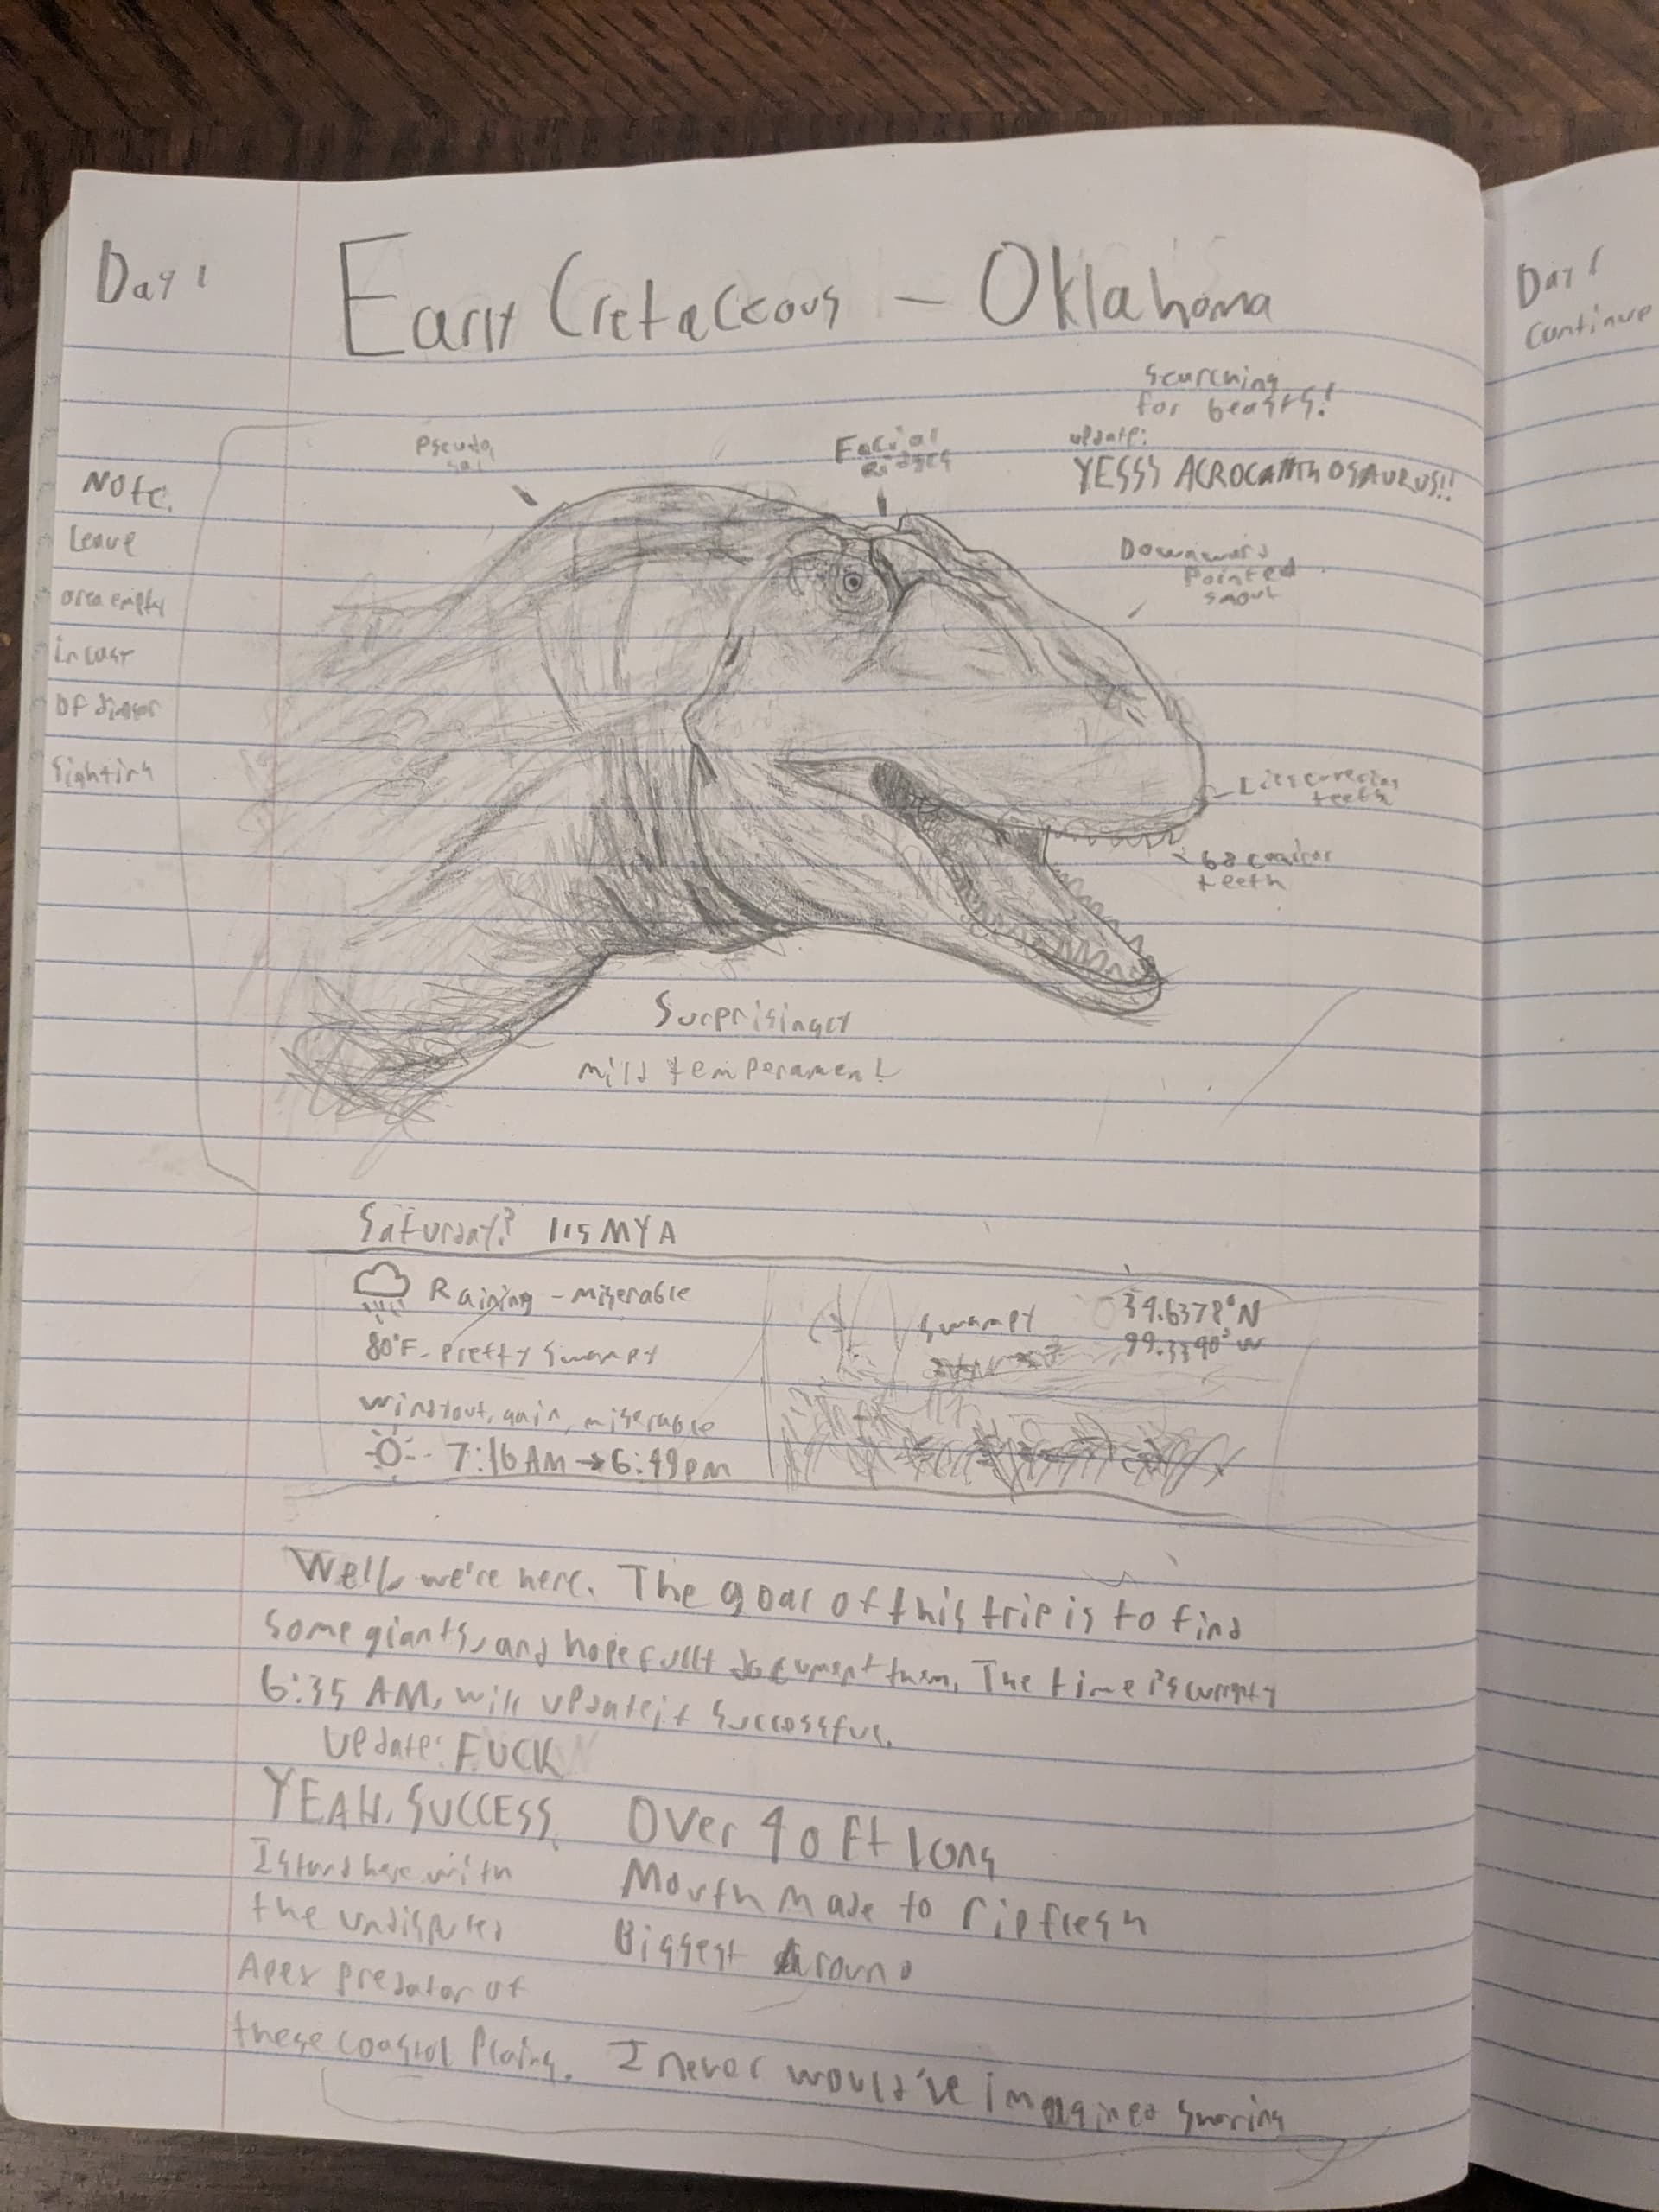 Day 1
Early Cretaceous - Oklahoma
Day 1
Continue
Searching
for beasts!
update:
YESSS ACROCANTHOSAURUS!!
Pseudo
sail
Facial
Ridges
Note:
Leave
area empty
in case
of dinosar
sighting
Downward
Pointed
snout
Lips covering
teeth
68 teeth
Surprisingly
mild temperament
Saturday? 115 MYA
Raining - miserable
80°F - Pretty swampy
miserable
7:16 AM → 6:49 PM
swampy
34.6378°N
99.3390°W
Well, we're here. The goal of this trip is to find
some giants, and hopefully document them. The time is currently
6:35 AM, will update if successful.
update: FUCK
YEAH, SUCCESS.
Over 40 ft long
I stand here with
Mouth made to rip flesh
the undisputed
Biggest Around
Apex predator of
these coastal plains.
I never would've imagined sharing